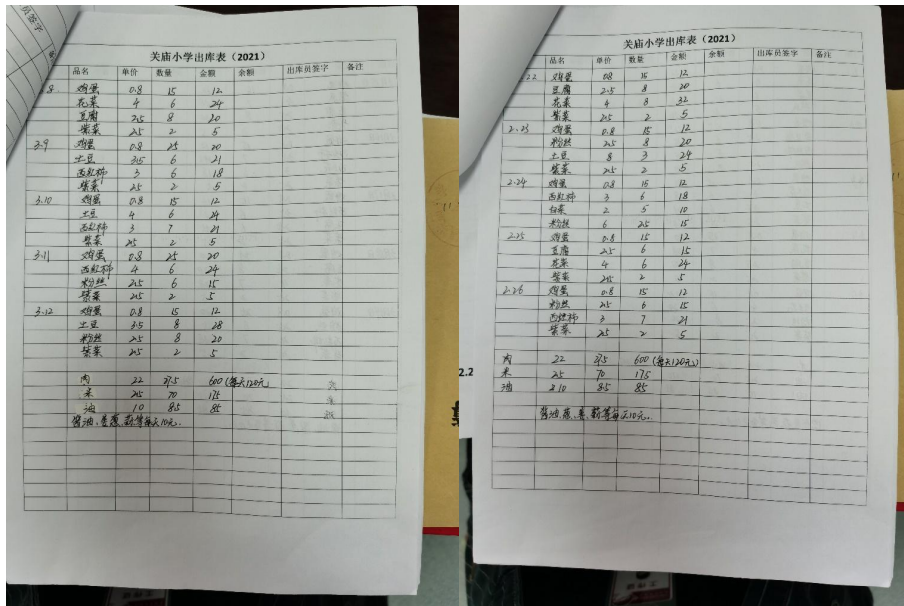 员签字
关庙小学出库表（2021）
品名 单价 数量 金额 余额 出库员签字 备注
8 鸡蛋 0.8 15 12
花菜 4 6 24
豆腐 2.5 8 20
紫菜 2.5 2 5
3.9 鸡蛋 0.8 25 20
土豆 3.5 6 21
西红柿 3 6 18
紫菜 2.5 2 5
3.10 鸡蛋 0.8 15 12
土豆 4 6 24
西红柿 3 7 21
紫菜 2.5 2 5
3.11 鸡蛋 0.8 25 20
西红柿 4 6 24
粉丝 2.5 6 15
紫菜 2.5 2 5
3.12 鸡蛋 0.8 15 12
土豆 3.5 8 28
粉丝 2.5 8 20
紫菜 2.5 2 5
肉 22 27.5 600（每天120元
米 2.5 70 175
油 10 8.5 85
酱油、姜葱、蒜等每天10元.
关庙小学出库表（2021）
品名 单价 数量 金额 余额 出库员签字 备注
22 鸡蛋 0.8 15 12
豆腐 2.5 8 20
花菜 4 8 32
紫菜 2.5 2 5
2.23 鸡蛋 0.8 15 12
粉丝 2.5 8 20
土豆 8 3 24
紫菜 2.5 2 5
2.24 鸡蛋 0.8 15 12
西红柿 3 6 18
白菜 2 5 10
粉丝 6 2.5 15
2.25 鸡蛋 0.8 15 12
豆腐 2.5 6 15
花菜 4 6 24
紫菜 2.5 2 5
2.26 鸡蛋 0.8 15 12
粉丝 2.5 6 15
西红柿 3 7 21
紫菜 2.5 2 5
肉 22 27.5 600（每天120元）
米 2.5 70 175
油 10 8.5 85
酱油、葱、姜、蒜等每天10元.
2.2